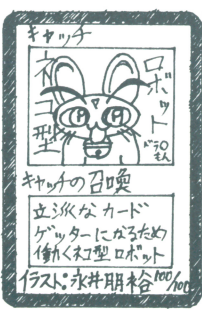 キャッチ
ネコ型
ロボット
ドラ○もん
キャッチの召喚
立派なカード
ゲッターになるため
働くネコ型ロボット
イラスト:永井明裕 100/100